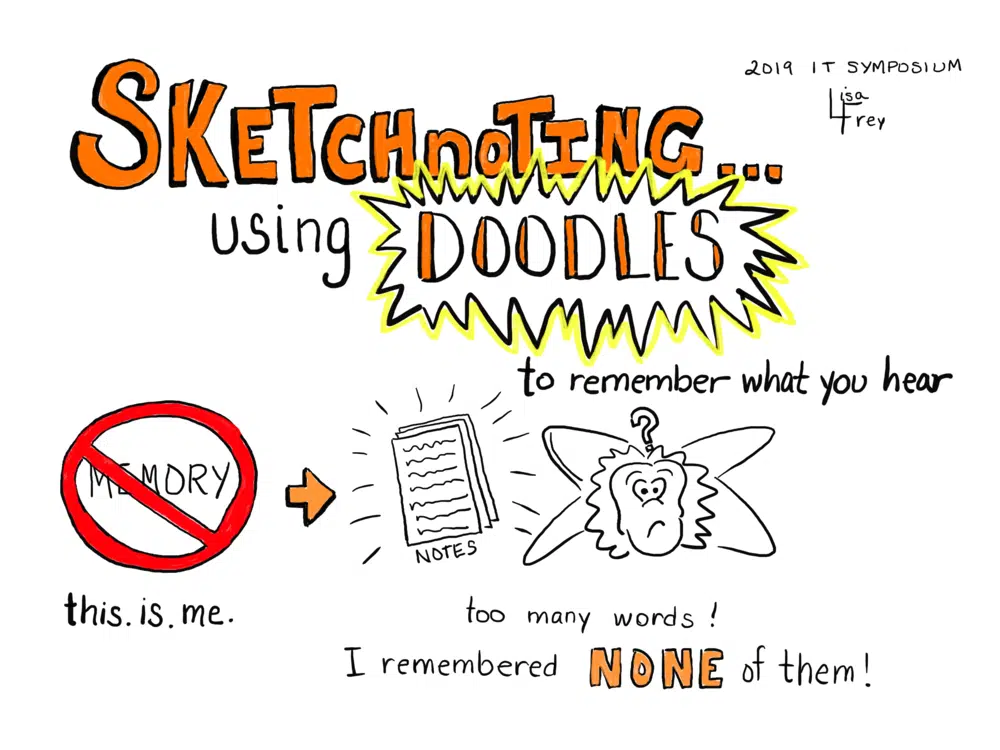 2019 IT SYMPOSIUM
Lisa
Frey
SKETCHnOTING...
using DOODLES
to remember what you hear
?
MEMORY
NOTES
this.is.me.
too many words!
I remembered NONE of them!